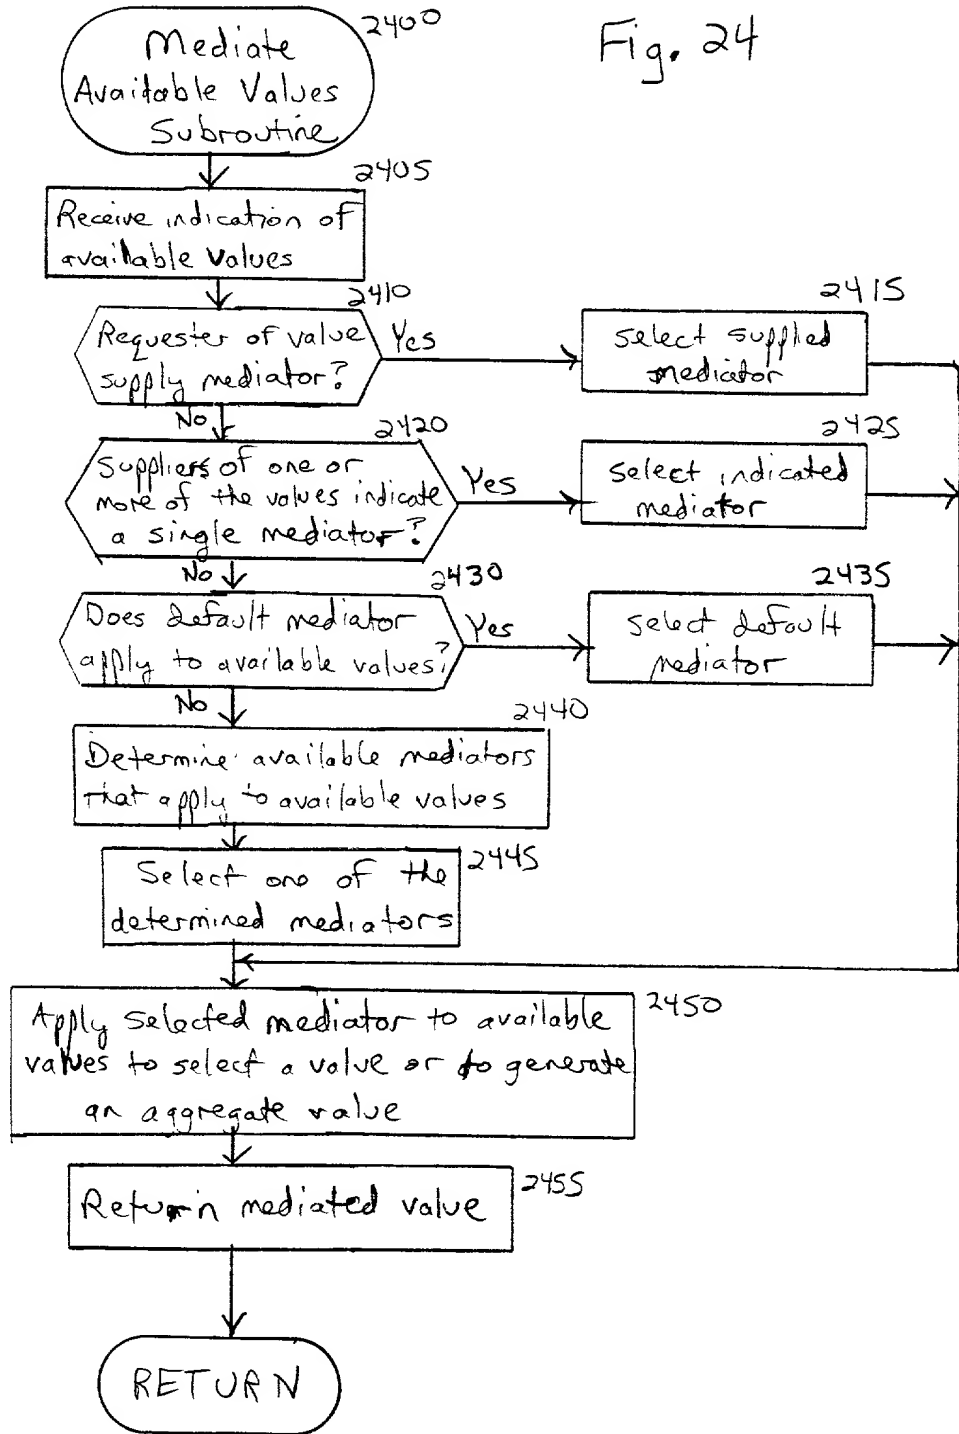 Fig. 24
2400
Mediate
Available Values
Subroutine
2405
Receive indication of
available values
2410
Requester of value
supply mediator?
Yes
2415
select supplied
mediator
No
2420
Suppliers of one or
more of the values indicate
a single mediator?
Yes
2425
select indicated
mediator
No
2430
Does default mediator
apply to available values?
Yes
2435
select default
mediator
No
2440
Determine available mediators
that apply to available values
2445
Select one of the
determined mediators
2450
Apply selected mediator to available
values to select a value or to generate
an aggregate value
2455
Return mediated value
RETURN